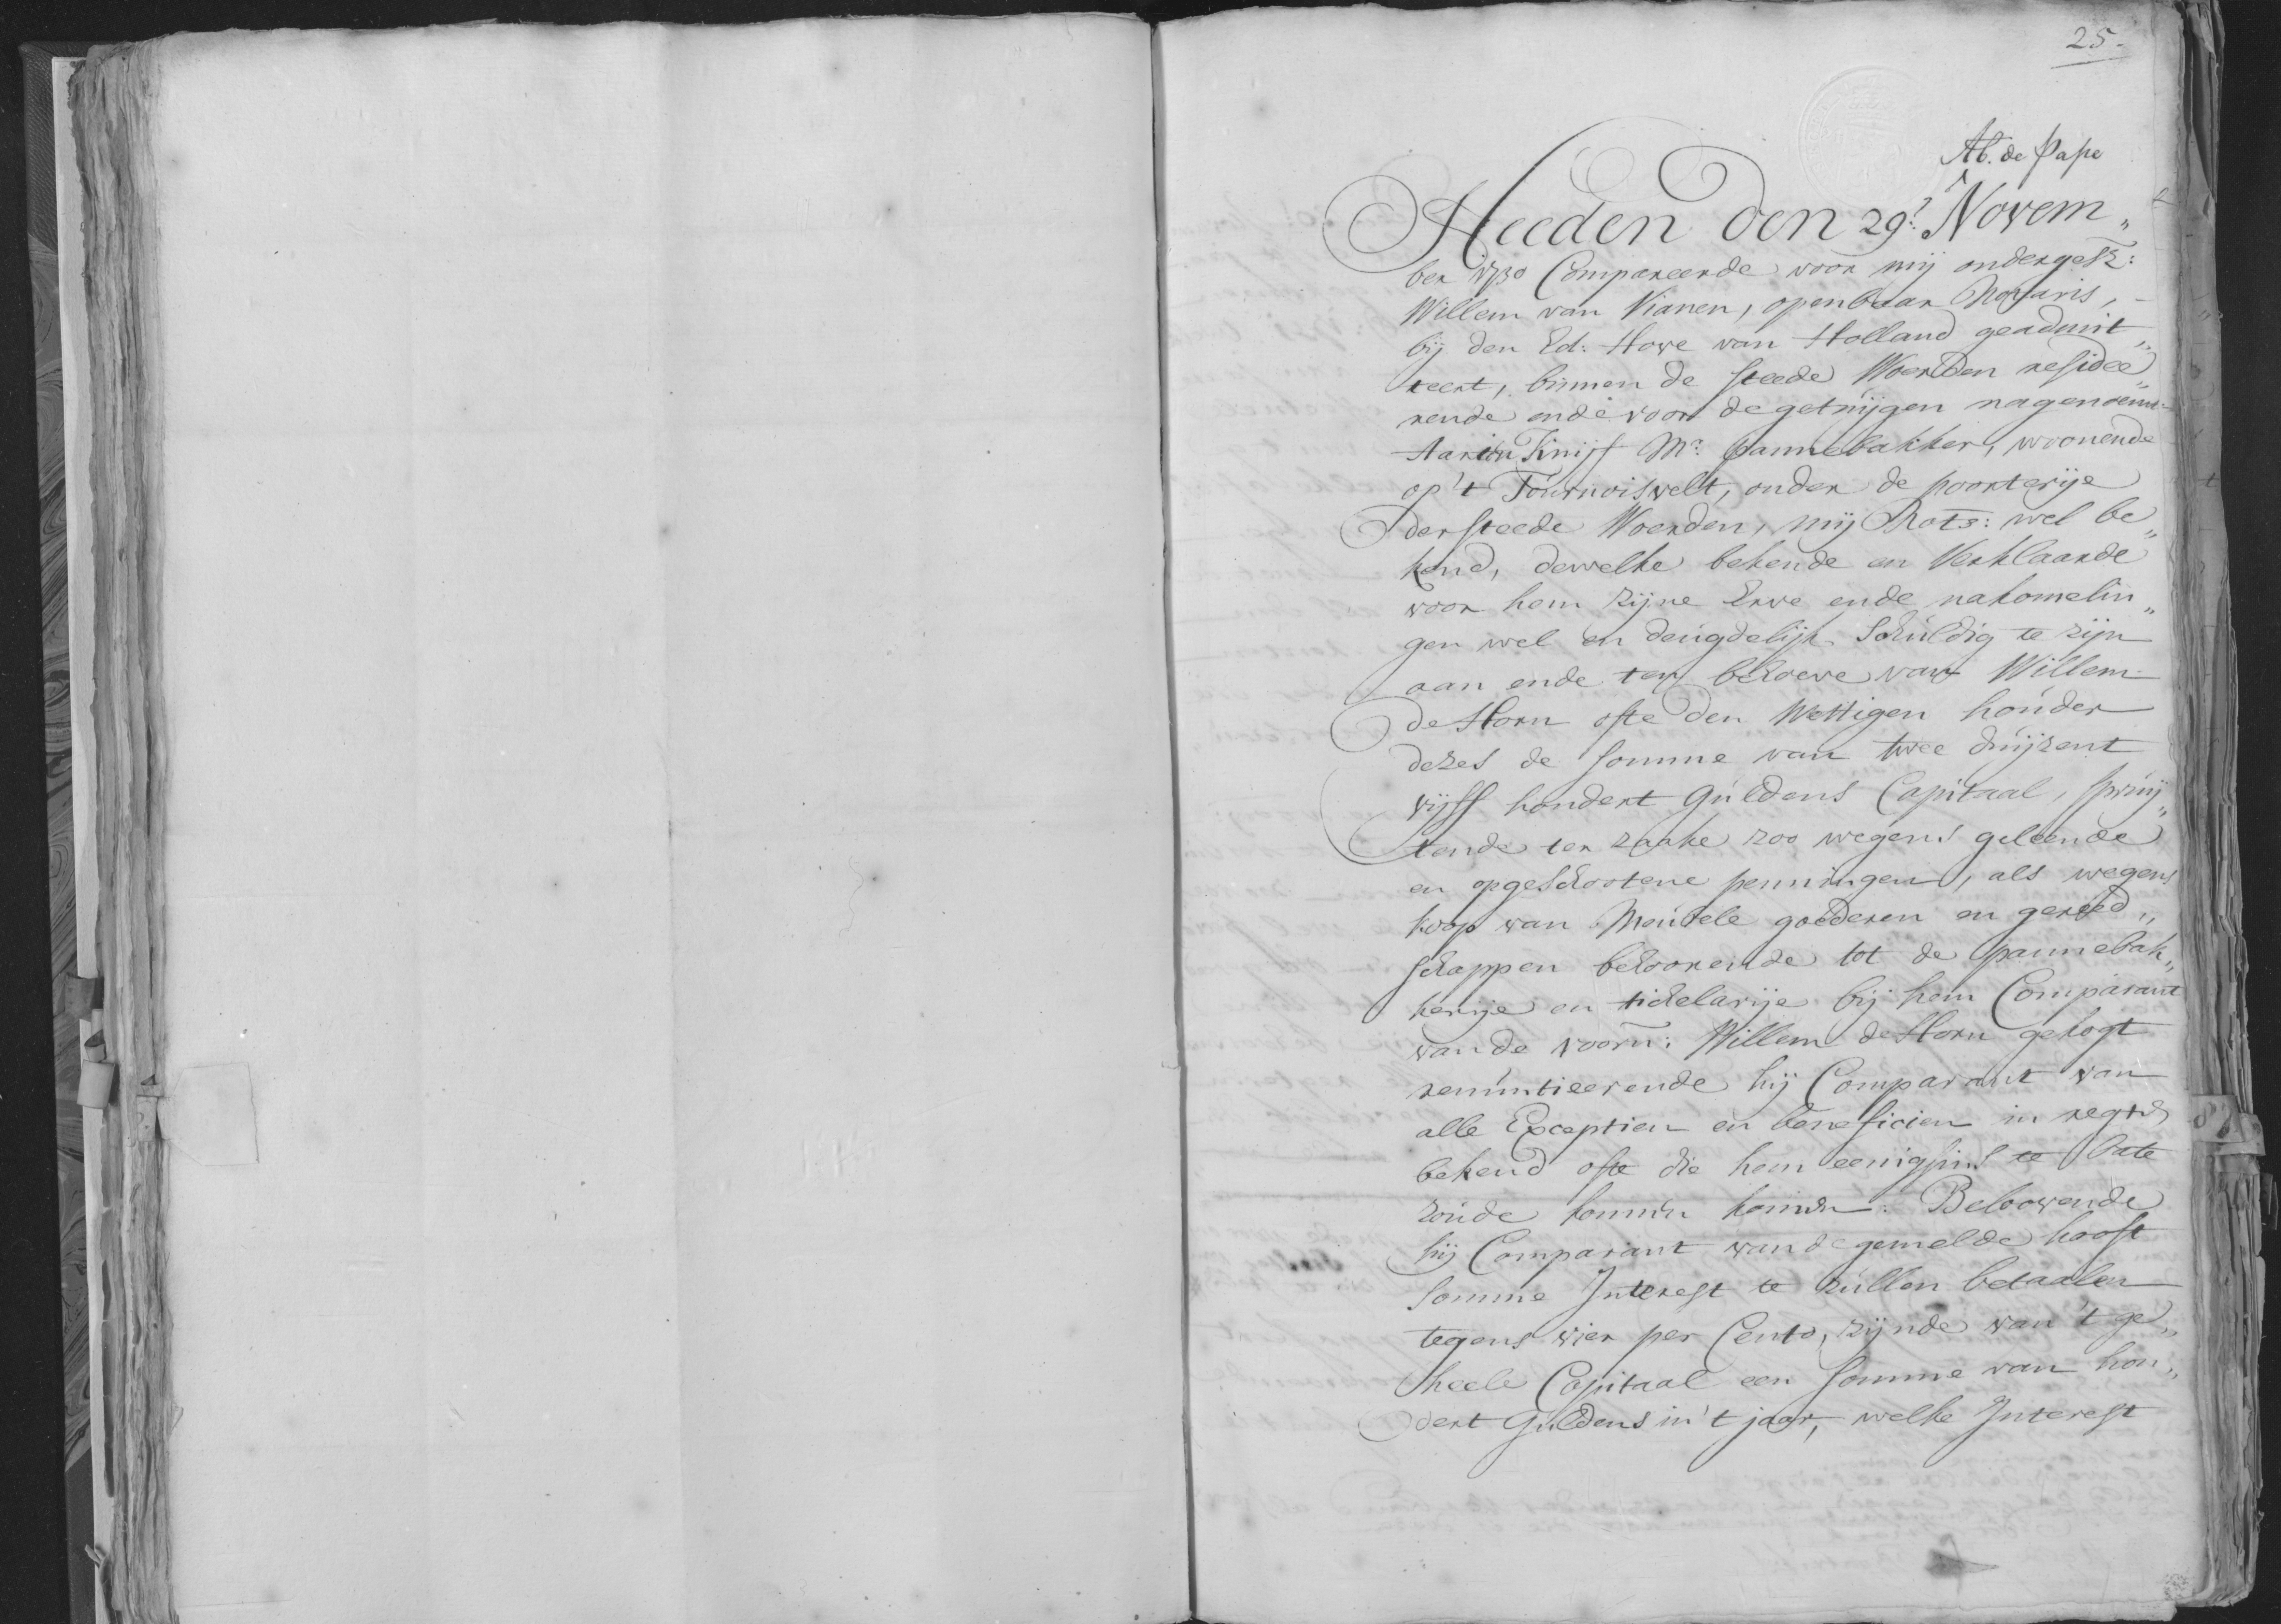 25.
Ab. de Pape
Heeden den 29e. Novem„
ber 1730 Compareerde voor mij ondergesz:
Willem van Vianen, openbaar Notaris,
bij den Ed: Hove van Holland geadmit„
teert, binnen de steede Woerden residee„
rende ende voor de getuijgen nagenoemt
Aarien Knijff Mr. pannebakker, woonende
op 't Tournoisvelt, onder de poorterije
der steede Woerden, mij Nots: wel be„
kend, dewelke bekende en verklaarde
voor hem zijne Erve ende nakomelin„
gen wel en deugdelijk schuldig te zijn
aan ende ten behoeve van Willem
de Horn ofte den Wettigen houder
dezes de somme van twee duijzent
vijff hondert Guldens Capitaal, spruij„
tende ter zaake zoo wegens geleende
en opgeschootene penningen, als wegens
koop van Meubele goederen en gereed„
schappen behoorende tot de pannebak„
kerije en tichelarije bij hem Comparant
van de voorn: Willem de Horn gekogt
renuntieerende hij Comparant van
alle Exceptien en beneficien in regte
bekend ofte die hem eenigsins te bate
zoude komen konnen. Beloovende
hij Comparant van de gemelde hooft
somme Interest te zullen betaalen
tegens vier per Cento, zijnde van 't ge„
heele Capitaal een somme van hon„
dert Guldens in 't jaar, welke Interest